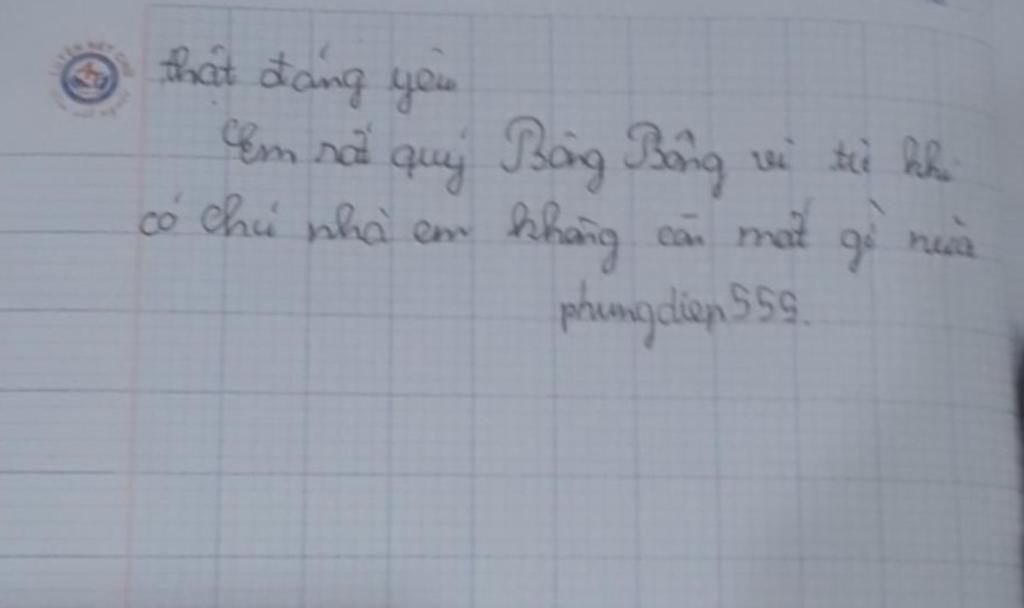 thật đáng yêu
Em rất quý Bông Bông vì từ khi
có chú nhà em không còn mất gì nữa
phungdiep555.